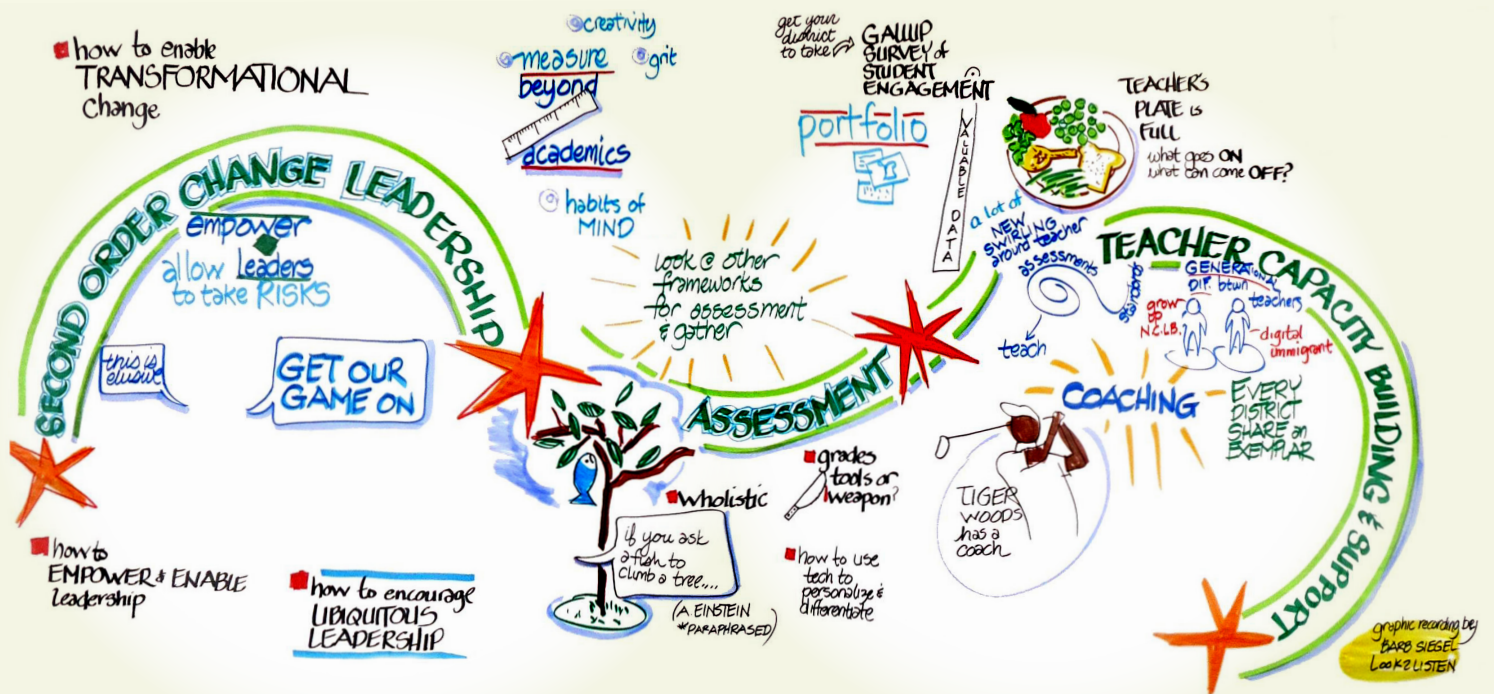 how to enable
TRANSFORMATIONAL
change
SECOND ORDER CHANGE LEADERSHIP
empower
allow Leaders
to take RISKS
this is
elusive
GET OUR
GAME ON
how to
EMPOWER & ENABLE
leadership
how to encourage
UBIQUITOUS
LEADERSHIP
creativity
measure
grit
beyond
academics
habits of
MIND
look @ other
frameworks
for assessment
& gather
ASSESSMENT
wholistic
if you ask
a fish to
climb a tree....
(A EINSTEIN
*PARAPHRASED)
grades
tools or
weapon?
how to use
tech to
personalize &
differentiate
get your
district
to take
GALLUP
SURVEY of
STUDENT
ENGAGEMENT
portfolio
VALUABLE DATA
TEACHER'S
PLATE is
FULL
what goes ON
what can come OFF?
a lot of
NEW
SWIRLING
around teacher
assessments
standards
teach
TEACHER CAPACITY BUILDING & SUPPORT
GENERATIONAL
DIF. btwn
teachers
grow
up
N.C.L.B.
digital
immigrant
COACHING
TIGER
WOODS
has a
coach
EVERY
DISTRICT
SHARE an
EXEMPLAR
graphic recording by
BARB SIEGEL
LOOK2LISTEN